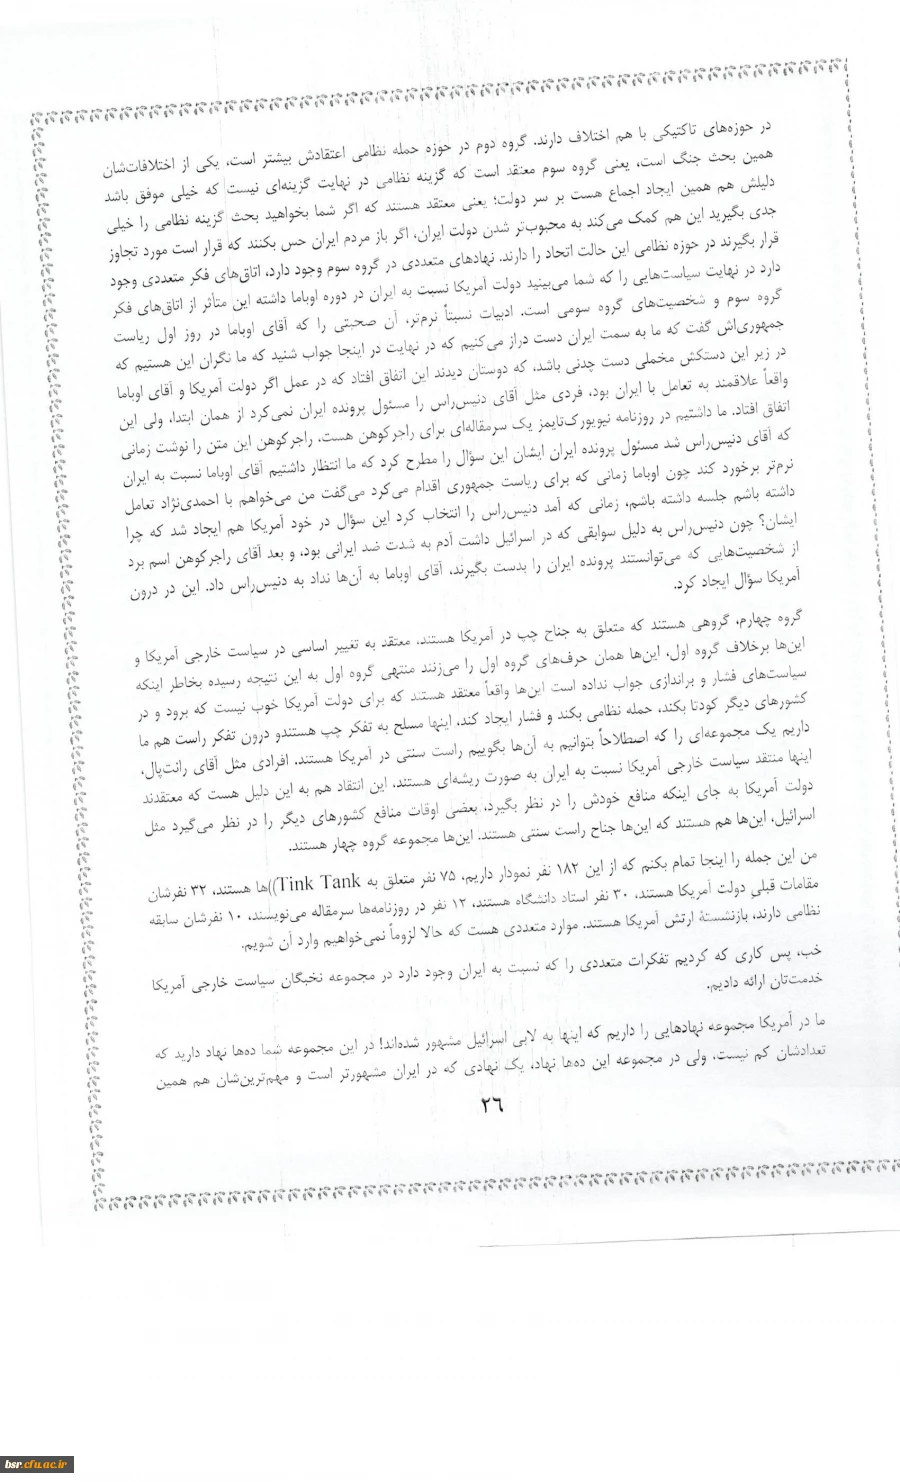 در حوزه‌های تاکتیکی با هم اختلاف دارند. گروه دوم در حوزه حمله نظامی اعتقادش بیشتر است، یکی از اختلافات‌شان
همین بحث جنگ است، یعنی گروه سوم معتقد است که گزینه نظامی در نهایت گزینه‌ای نیست که خیلی موفق باشد
دلیلش هم همین ایجاد اجماع هست بر سر دولت؛ یعنی معتقد هستند که اگر شما بخواهید بحث گزینه نظامی را خیلی
جدی بگیرید این هم کمک می‌کند به محبوب‌تر شدن دولت ایران، اگر باز مردم ایران حس بکنند که قرار است مورد تجاوز
قرار بگیرند در حوزه نظامی این حالت اتحاد را دارند. نهادهای متعددی در گروه سوم وجود دارد، اتاق‌های فکر متعددی وجود
دارد در نهایت سیاست‌هایی را که شما می‌بینید دولت آمریکا نسبت به ایران در دوره اوباما داشته این متأثر از اتاق‌های فکر
گروه سوم و شخصیت‌های گروه سومی است. ادبیات نسبتاً نرم‌تر، آن صحبتی را که آقای اوباما در روز اول ریاست
جمهوری‌اش گفت که ما به سمت ایران دست دراز می‌کنیم که در نهایت در اینجا جواب شنید که ما نگران این هستیم که
در زیر این دستکش مخملی دست چدنی باشد، که دوستان دیدند این اتفاق افتاد که در عمل اگر دولت آمریکا و آقای اوباما
واقعاً علاقمند به تعامل با ایران بود، فردی مثل آقای دنیس‌راس را مسئول پرونده ایران نمی‌کرد از همان ابتدا، ولی این
اتفاق افتاد. ما داشتیم در روزنامه نیویورک‌تایمز یک سرمقاله‌ای برای راجرکوهن هست، راجرکوهن این متن را نوشت زمانی
که آقای دنیس‌راس شد مسئول پرونده ایران ایشان این سؤال را مطرح کرد که ما انتظار داشتیم آقای اوباما نسبت به ایران
نرم‌تر برخورد کند چون اوباما زمانی که برای ریاست جمهوری اقدام می‌کرد می‌گفت من می‌خواهم با احمدی‌نژاد تعامل
داشته باشم جلسه داشته باشم، زمانی که آمد دنیس‌راس را انتخاب کرد این سؤال در خود آمریکا هم ایجاد شد که چرا
ایشان؟ چون دنیس‌راس به دلیل سوابقی که در اسرائیل داشت آدم به شدت ضد ایرانی بود، و بعد آقای راجرکوهن اسم برد
از شخصیت‌هایی که می‌توانستند پرونده ایران را بدست بگیرند، آقای اوباما به آن‌ها نداد به دنیس‌راس داد. این در درون
آمریکا سؤال ایجاد کرد.
گروه چهارم، گروهی هستند که متعلق به جناح چپ در آمریکا هستند، معتقد به تغییر اساسی در سیاست خارجی آمریکا و
این‌ها برخلاف گروه اول، این‌ها همان حرف‌های گروه اول را می‌زنند منتهی گروه اول به این نتیجه رسیده بخاطر اینکه
سیاست‌های فشار و براندازی جواب نداده است این‌ها واقعاً معتقد هستند که برای دولت آمریکا خوب نیست که برود و در
کشورهای دیگر کودتا بکند، حمله نظامی بکند و فشار ایجاد کند، اینها مسلح به تفکر چپ هستندو درون تفکر راست هم ما
داریم یک مجموعه‌ای را که اصطلاحاً بتوانیم به آن‌ها بگوییم راست سنتی در آمریکا هستند. افرادی مثل آقای رانت‌پال،
اینها منتقد سیاست خارجی آمریکا نسبت به ایران به صورت ریشه‌ای هستند، این انتقاد هم به این دلیل هست که معتقدند
دولت آمریکا به جای اینکه منافع خودش را در نظر بگیرد، بعضی اوقات منافع کشورهای دیگر را در نظر می‌گیرد مثل
اسرائیل، این‌ها هم هستند که این‌ها جناح راست سنتی هستند. این‌ها مجموعه گروه چهار هستند.
من این جمله را اینجا تمام بکنم که از این ۱۸۲ نفر نمودار داریم، ۷۵ نفر متعلق به Tink Tank))ها هستند، ۳۲ نفرشان
مقامات قبلیِ دولت آمریکا هستند، ۳۰ نفر استاد دانشگاه هستند، ۱۲ نفر در روزنامه‌ها سرمقاله می‌نویسند، ۱۰ نفرشان سابقه
نظامی دارند، بازنشستهٔ ارتش آمریکا هستند. موارد متعددی هست که حالا لزوماً نمی‌خواهیم وارد آن شویم.
خب، پس کاری که کردیم تفکرات متعددی را که نسبت به ایران وجود دارد در مجموعه نخبگان سیاست خارجی آمریکا
خدمت‌تان ارائه دادیم.
ما در آمریکا مجموعه نهادهایی را داریم که اینها به لابی اسرائیل مشهور شده‌اند! در این مجموعه شما ده‌ها نهاد دارید که
تعدادشان کم نیست، ولی در مجموعه این ده‌ها نهاد، یک نهادی که در ایران مشهورتر است و مهم‌ترین‌شان هم همین
۲۶
bsr.cfu.ac.ir